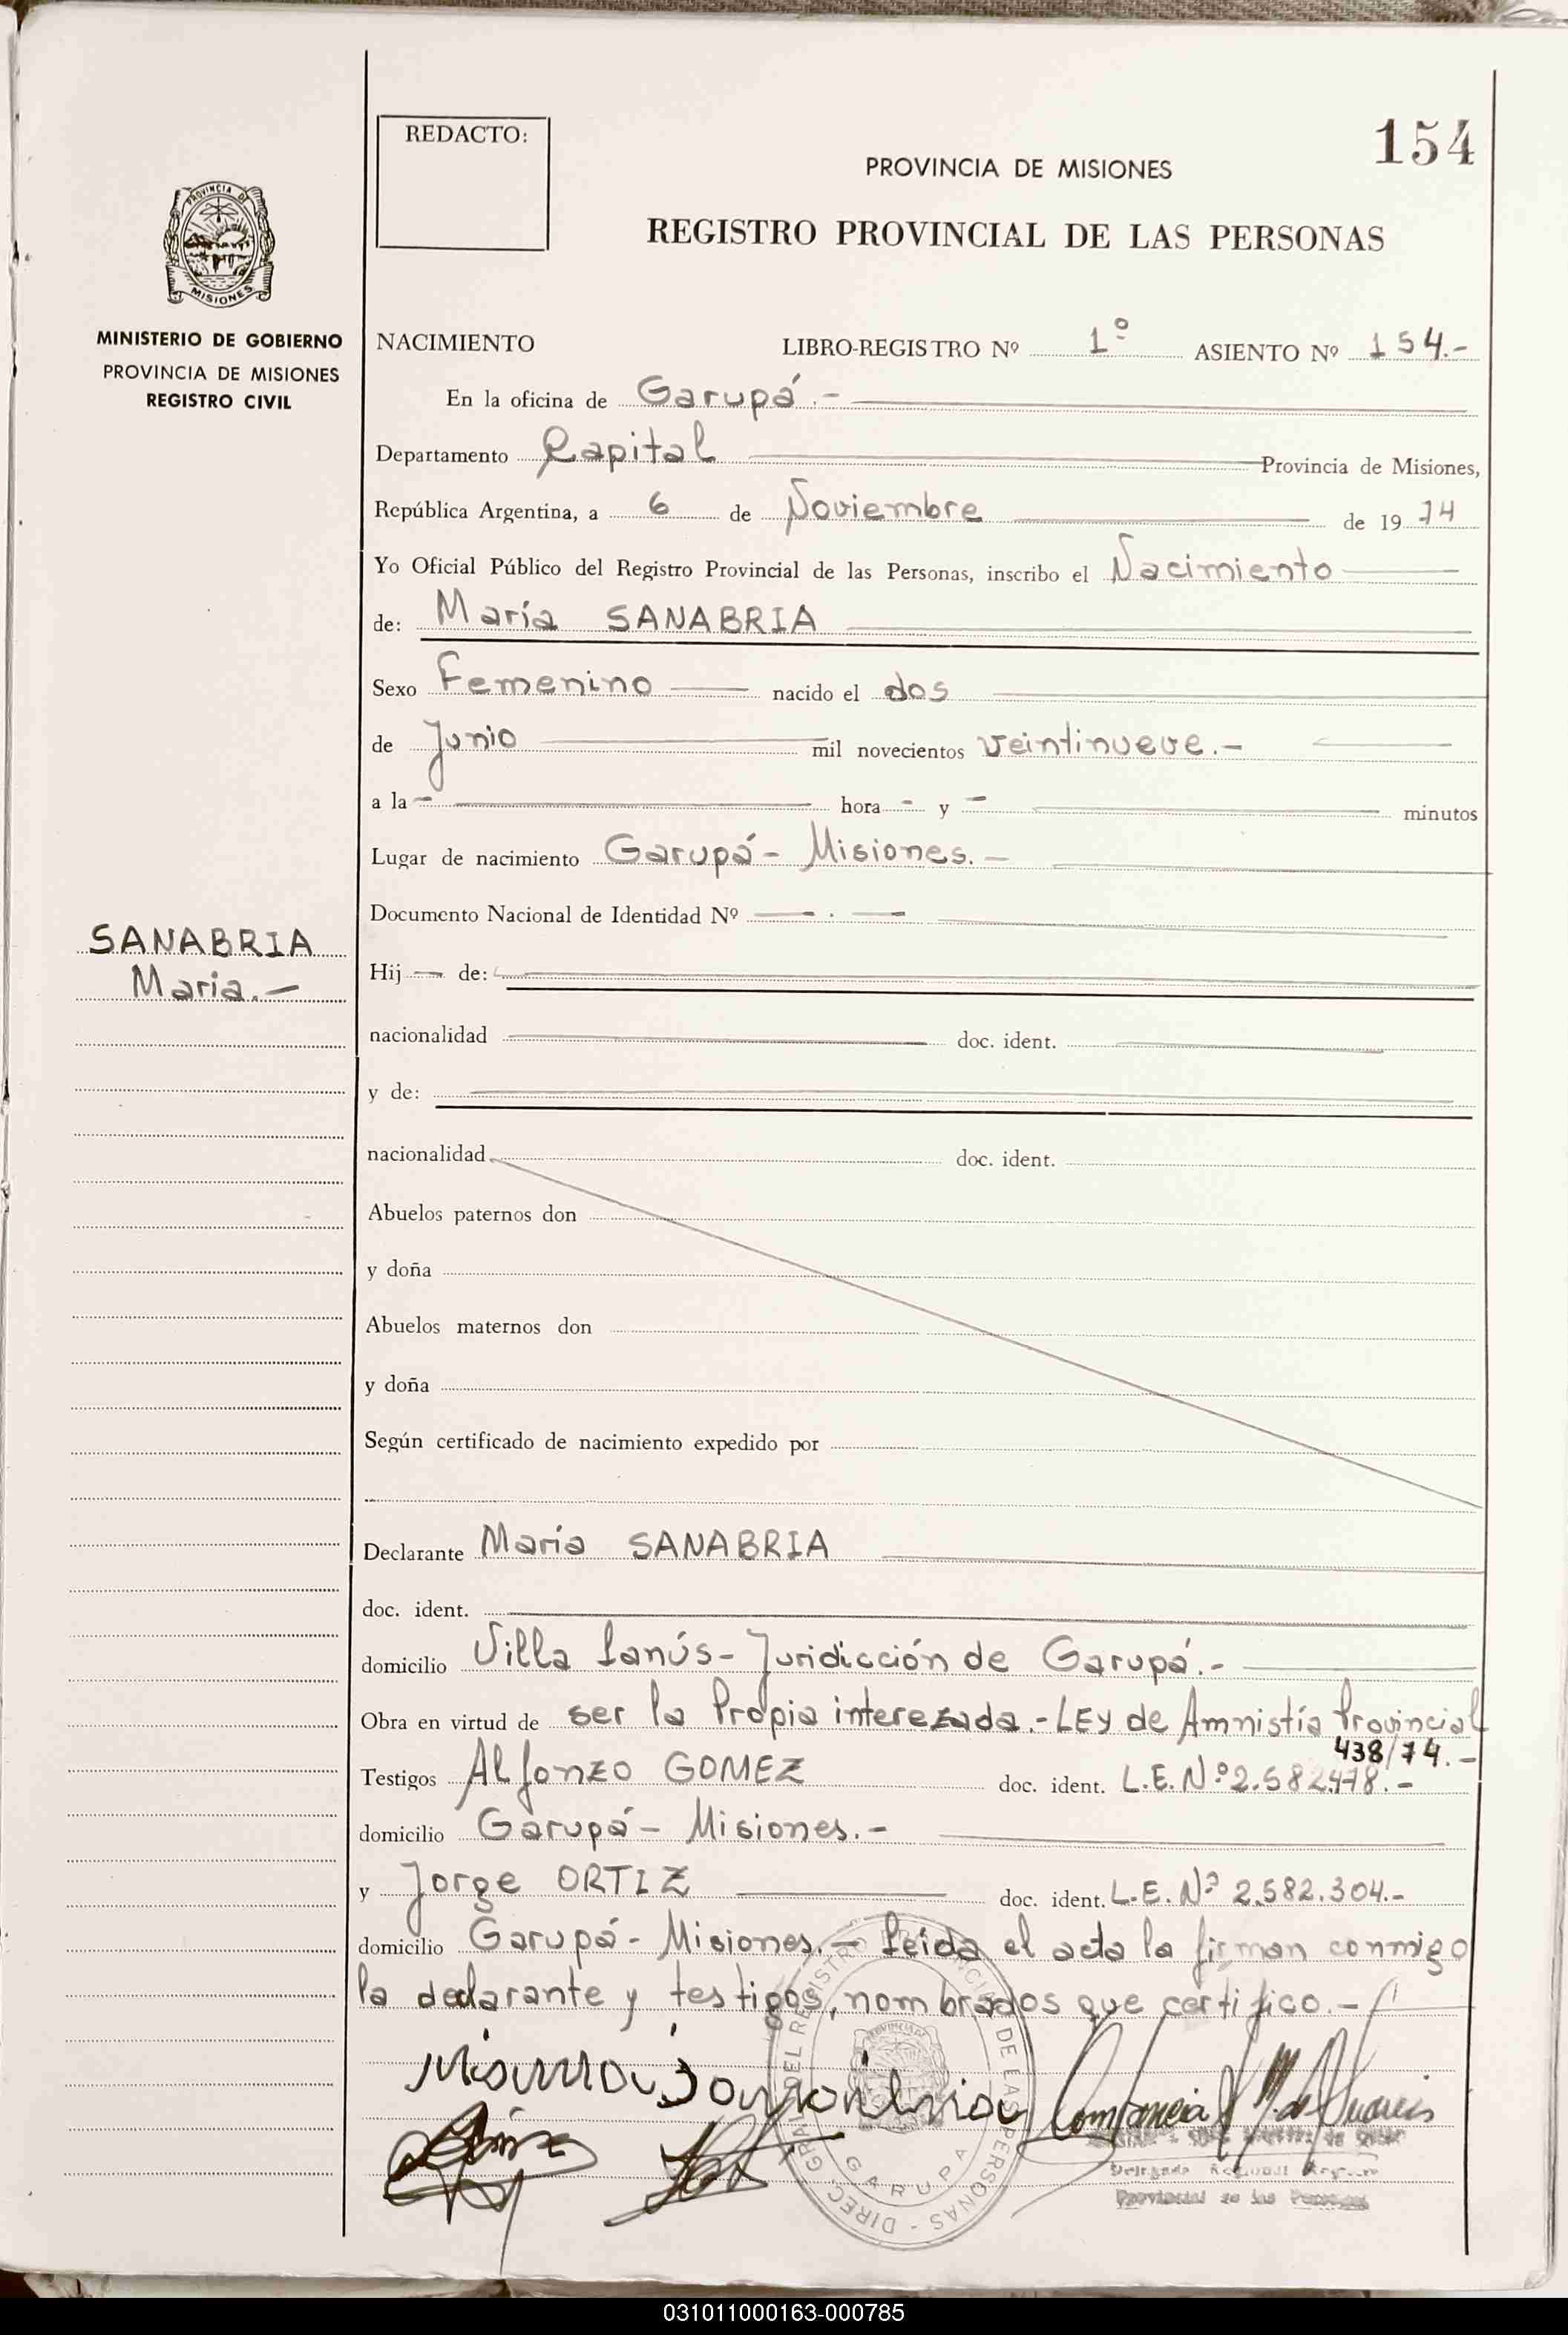 154
REDACTO:
PROVINCIA DE MISIONES
REGISTRO PROVINCIAL DE LAS PERSONAS
PROVINCIA DE
MISIONES
MINISTERIO DE GOBIERNO
PROVINCIA DE MISIONES
REGISTRO CIVIL
NACIMIENTO LIBRO-REGISTRO Nº 1º ASIENTO Nº 154.-
En la oficina de Garupá.-
Departamento Capital Provincia de Misiones,
República Argentina, a 6 de Noviembre de 1974
Yo Oficial Público del Registro Provincial de las Personas, inscribo el Nacimiento
de: María SANABRIA
Sexo Femenino nacido el dos
de Junio mil novecientos veintinueve.-
a la - hora - y - minutos
Lugar de nacimiento Garupá- Misiones.-
Documento Nacional de Identidad Nº
SANABRIA
Maria.-
Hij de:
nacionalidad doc. ident.
y de:
nacionalidad doc. ident.
Abuelos paternos don
y doña
Abuelos maternos don
y doña
Según certificado de nacimiento expedido por
Declarante María SANABRIA
doc. ident.
domicilio Villa Lanús- Juridicción de Garupá.-
Obra en virtud de ser la Propia interezada.- LEy de Amnistía Provincial
438/74.-
Testigos ALfonzo GOMEZ doc. ident. L.E.Nº2.582.478.-
domicilio Garupá- Misiones.-
y Jorge ORTIZ doc. ident. L.E. Nº 2.582.304.-
domicilio Garupá- Misiones.- Leída el acta la firman conmigo
la declarante y testigos, nombrados que certifico.-
DIREC. GRAL. DEL REGISTRO PROVINCIAL DE LAS PERSONAS -
GARUPA
Provincial de las Personas
031011000163-000785